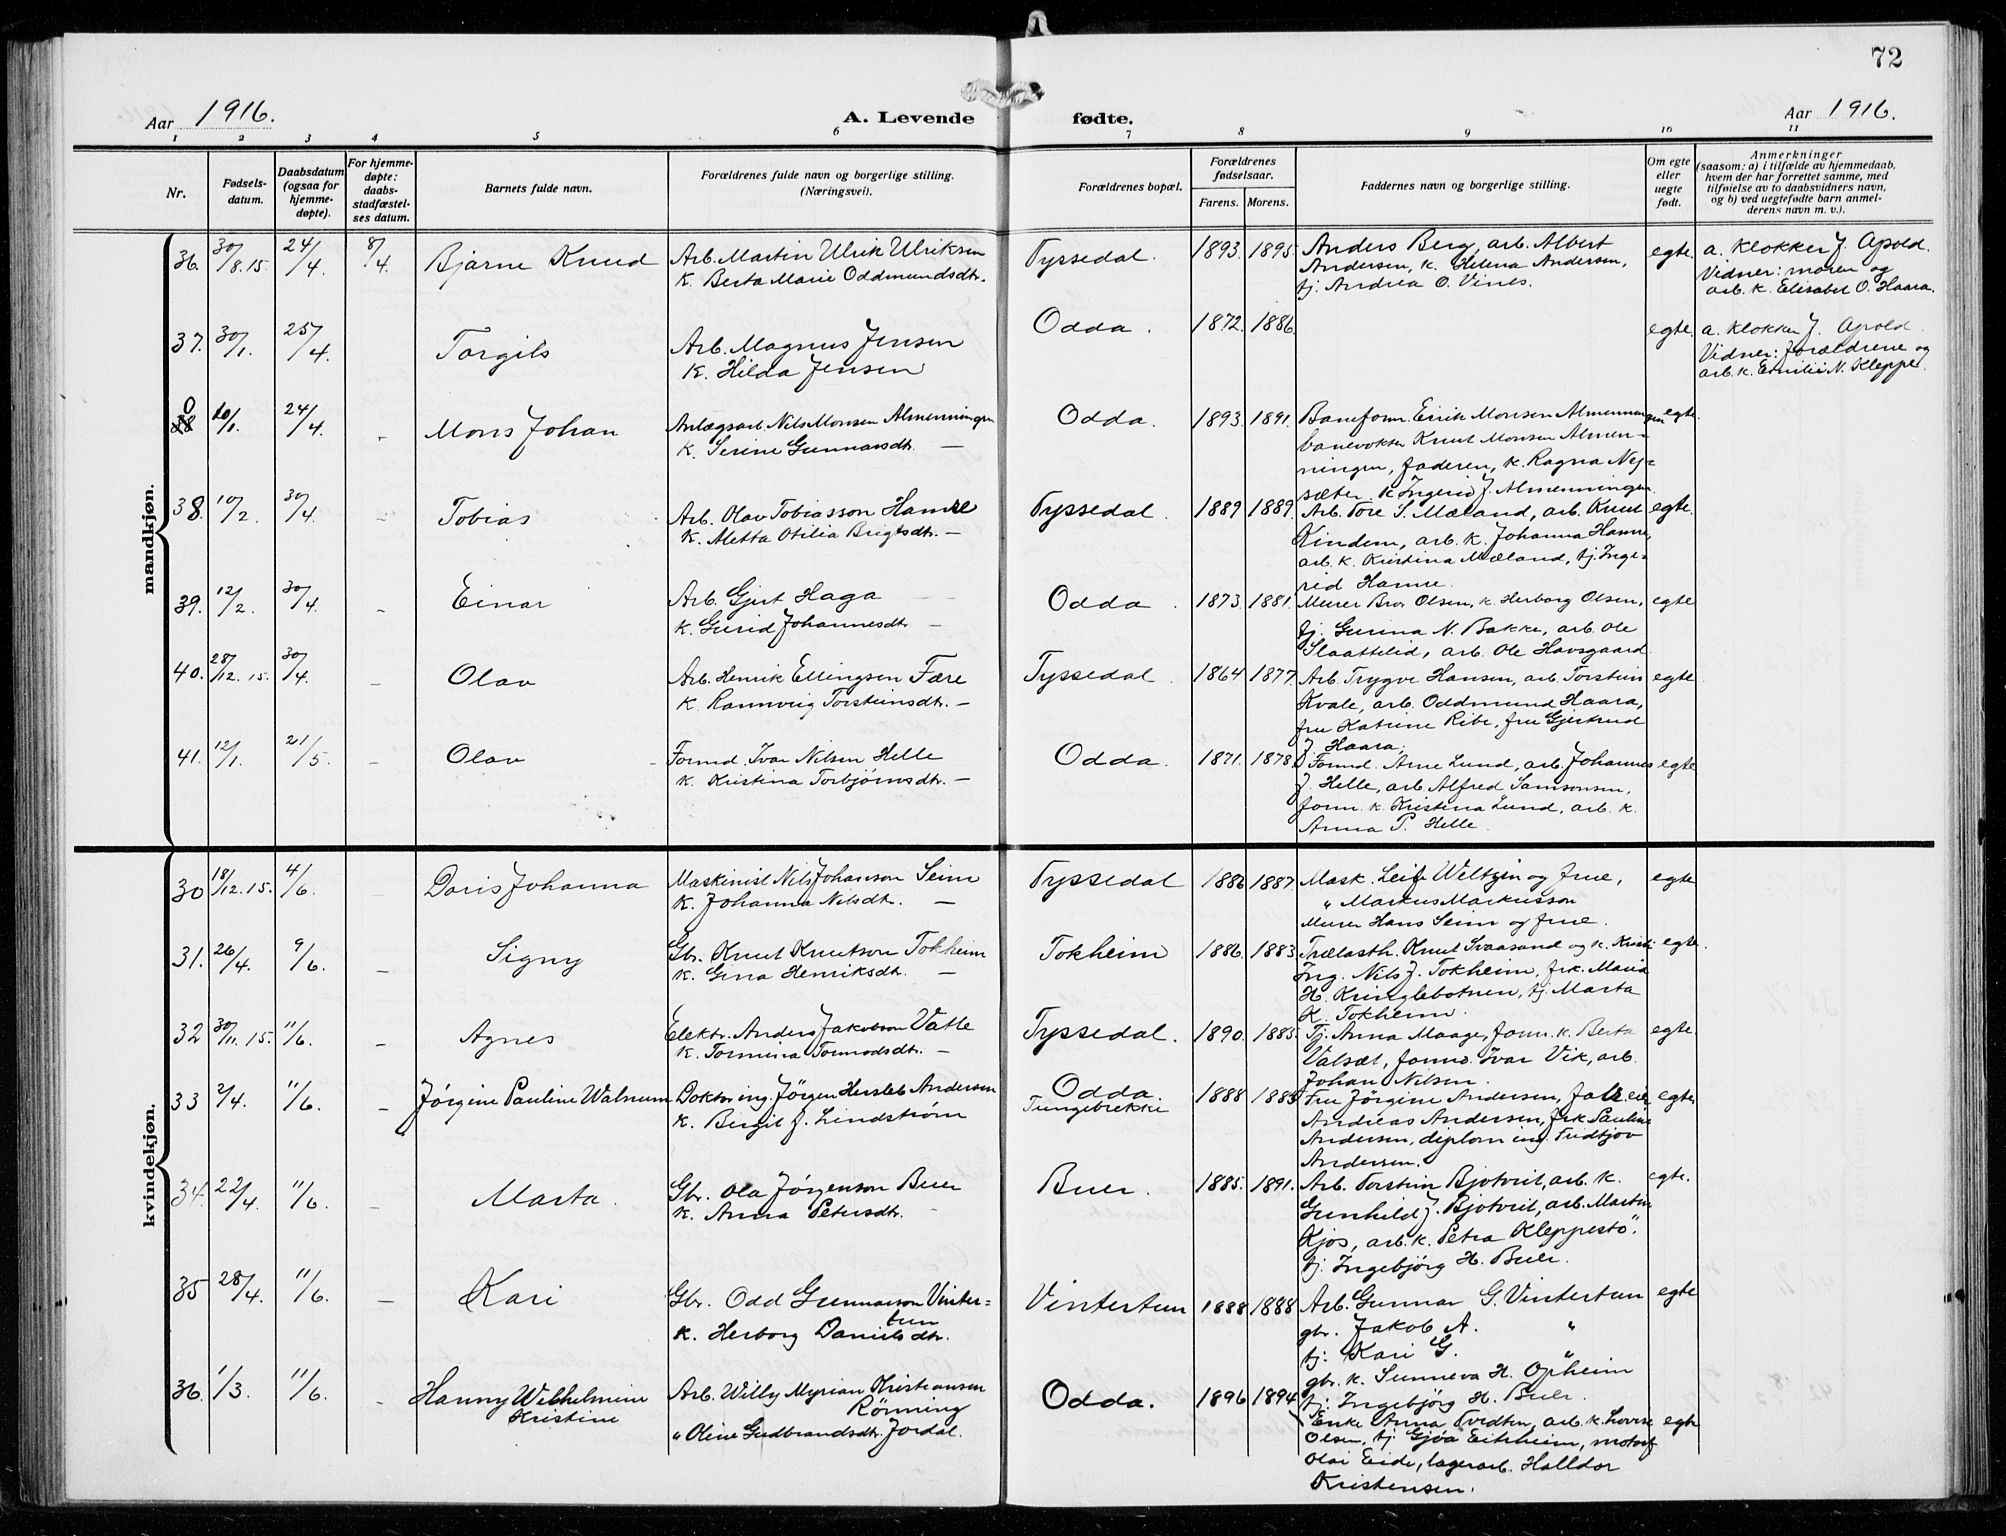 72
Aar 1916.
A. Levende fødte.
Aar 1916.
1 2 3 4 5 6 7 8 9 10 11
Nr.
Fødsels-
datum.
Daabsdatum
(ogsaa for
hjemme-
døpte).
For hjemme-
døpte:
daabs-
stadfæstel-
ses datum.
Barnets fulde navn.
Forældrenes fulde navn og borgerlige stilling.
(Næringsvei).
Forældrenes bopæl.
Forældrenes
fødselsaar.
Farens. Morens.
Faddernes navn og borgerlige stilling.
Om egte
eller
uegte
født.
Anmerkninger
(saasom: a) i tilfælde av hjemmedaab,
hvem der har forrettet samme, med
tilføielse av to daabsvidners navn,
og b) ved uegtefødte barn anmel-
derens navn m. v.).
mandkjøn.
36. 30/8.15. 24/4. 8/4. Bjarne Knud
Arb. Martin Ulrik Ulriksen
K. Berta Marie Oddmundsdtr.
Tyssedal. 1893. 1895.
Anders Berg, arb. Albert
Andersen, k. Helena Andersen,
tj. Andrea O. Vines.
egte.
a. Klokker J. Apold.
Vidner: moren og
arb. k. Elisabet O. Haara.
37. 30/1. 25/4. Torgils
Arb. Magnus Jensen
K. Hilda Jensen
Odda. 1872. 1886.
egte.
a. Klokker J. Apold.
Vidner: forældrene og
arb. k. Emilie N. Kleppe.
0
38 10/1. 24/4. - Mons Johan
Anlægsarb. Nils Monsen Almenningen
K. Serine Gunnarsdtr. —
Odda. 1893. 1891.
Baneform. Eirik Monsen Almenningen
banevokter Knut Monsen Almen-
ningen, faderen, k. Ragna Nej=
sæter. k. Ingerid J. Almenningen.
egte.
38. 10/2. 30/4. - Tobias
Arb. Olav Tobiasson Hamre
K. Aletta Otilia Brigtsdtr. —
Tyssedal. 1889 1889.
Arb. Tore S. Mæland, arb. Knut
Kindem, arb. k. Johanna Hamre,
arb. k. Kristina Mæland, tj. Inge-
rid Hamre.
egte.
39. 12/2. 30/4. - Einar
Arb. Gjert Haga
K. Gurid Johannesdtr. —
Odda. 1873. 1881.
Murer Bror Olsen, k. Herborg Olsen,
tj. Gurina N. Bakke, arb. Ole
Slaattelid, arb. Ole Havsgaard.
egte
40. 28/12. 15. 30/4. - Olav
Arb. Henrik Ellingsen Fære
K. Rannveig Torsteinsdtr. —
Tyssedal. 1864 1877.
Arb. Trygve Hansen, arb. Torstein
Kvale, arb. Oddmund Haara,
fru Katrine Ribe, fru Gjertrud
J. Haara.
egte
41. 12/1. 21/5. - Olav
Formd. Ivar Nilsen Helle
K. Kristina Torbjørnsdtr. —
Odda. 1871. 1878.
Formd. Arne Lund, arb. Johannes
J. Helle, arb. Alfred Samsonsen,
form. k. Kristina Lund, arb. k.
Anna P. Helle.
egte
kvindekjøn.
30 18/12. 15. 4/6. Doris Johanna
Maskinist Nils Johanson Seim
K. Johanna Nilsdtr. —
Tyssedal 1886 1887.
Mask. Leif Weltzin og frue,
" Markus Markusson
Murer Hans Seim og frue.
egte
31. 26/4. 9/6. - Signy
Gbr. Knut Knutson Tokheim
K. Gina Henriksdtr. —
Tokheim 1886. 1883.
Trælasth. Knut Svaasand og k. Kristi
Ing. Nils J. Tokheim, frk. Maria
H. Kringlebotnen, tj. Marta
K. Tokheim.
egte.
32 30/11. 15. 11/6. - Agnes
Elektr. Anders Jakobson Vatle
K. Tormina Tormodsdtr. —
Tyssedal. 1890. 1885.
Tj. Anna Maage, form. k. Berta
Valsæt, formd. Ivar Vik, arb.
Johan Nilsen.
egte.
33 2/4. 11/6. - Jørgine Pauline Walnum
Doktor ing. Jørgen Hersleb Andersen
K. Birgit J. Lindstrøm
Odda.
Tungebrekke
1888 1885
Fru Jørgine Andersen,
Andreas Andersen, frk Pauline
Andersen, diplom ing. Fridtjov
Andersen.
egte
34. 22/4. 11/6. - Marta.
Gbr. Ola Jørgenson Buer
K. Anna Petersdtr. -
Buer. 1885. 1891.
Arb. Torstein Bjotveit, arb. k.
Gunhild J. Bjotveit, arb. Martin
Kjos, arb. k. Petra Kleppestø,
tj. Ingebjørg H. Buer.
egte.
35 28/4. 11/6. — Kari
Gbr. Odd Gunnarson Vinter=
tun
K. Herborg Danielsdtr.
Vintertun 1888 1888
Arb. Gunnar G. Vintertun
gbr. Jakob A. "
tj. Kari G. "
gbr. k. Sunneva H. Opheim
tj. Ingebjørg H. Buer.
egte
36. 1/3. 11/6. - Hanny Wilhelmine
Kristine
Arb. Willy Myrian Kristiansen
Rønning
" Oline Gudbrandsdtr. Jordal.
Odda. 1896 1894
Enke Anna Tveden, arb. k. Lovise
Olsen, tj. Gjøa Eitrheim, motorf.
Olai Eide, lagerarb. Halldor
Kristensen.
egte